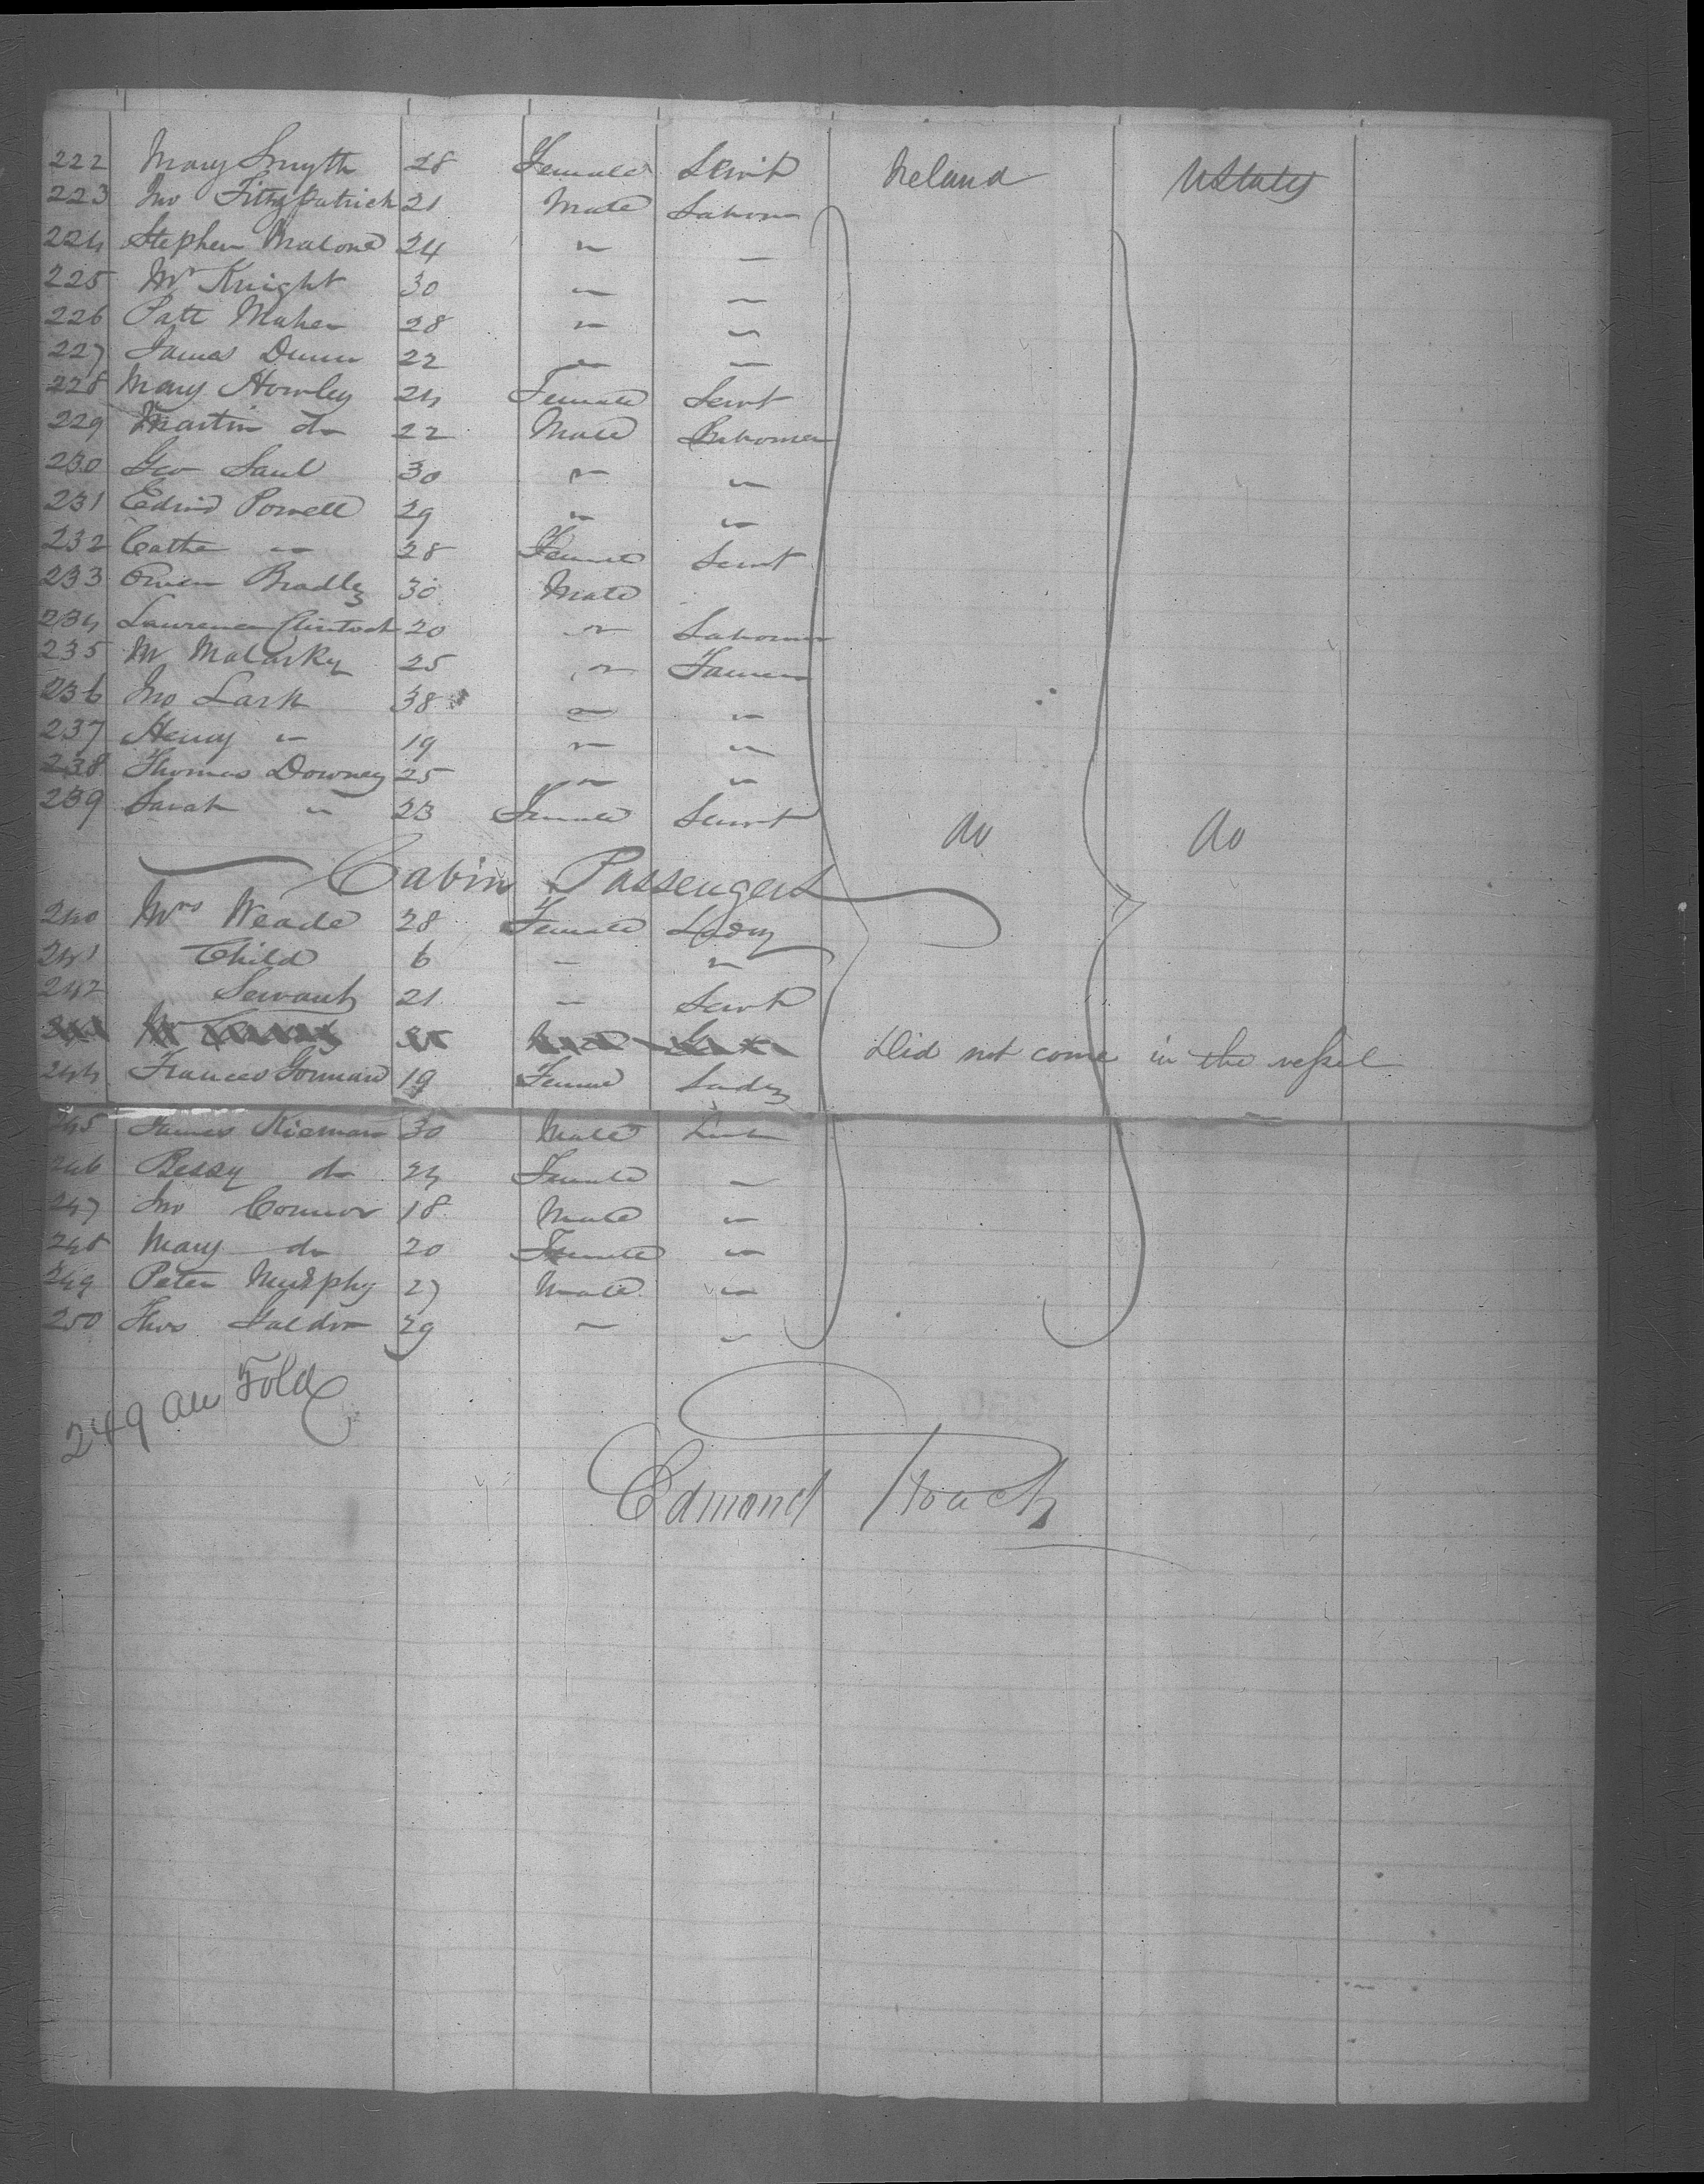 222 Mary Smyth 28 Female Servt Ireland UStates
223 Jno Fitzpatrick 21 Male Labour
224 Stephen Malone 24 " "
225 Mr Knight 30 " "
226 Patt Maher 28 " "
227 James Dunn 22 " "
228 Mary Howley 24 Female Servt
229 Martin do 22 Male Labourer
230 Geo Saul 30 " "
231 Edwd Powell 29 " "
232 Cathe " 28 Female Servt
233 Owen Bradley 30 Male
234 Lawrence Clintock 20 " Labourer
235 M Malarky 25 " Farmer
236 Jno Lark 38 " "
237 Henry " 19 " "
238 Thomas Downey 25 " "
239 Sarah " 23 Female Servt do do
Cabin Passengers
240 Mrs Weade 28 Female Lady
241 Child 6 " "
242 Servant 21 " Servt
Did not come in the vessel
244 Frances Gorman 19 Female Lady
245 James Kiernan 30 Male
246 Bessy do 24 Female "
247 Jno Connor 18 Male "
248 Mary do 20 Female "
249 Peter Murphy 27 Male "
250 Thos 29 " "
249 all Told
Edmond Roach